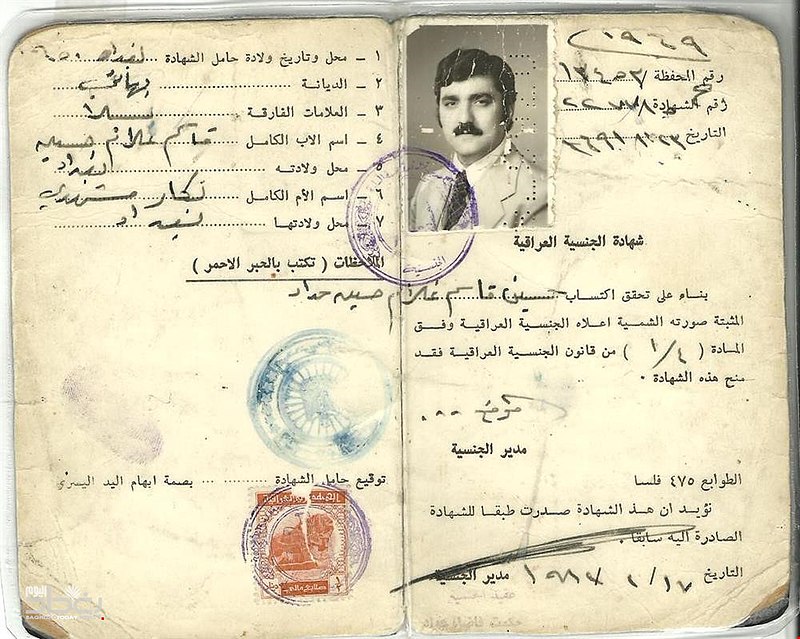 ١٩٦٩
رقم المحفظة
رقم الشهادة
التاريخ
شهادة الجنسية العراقية
بناء على تحقق اكتساب حسين قاسم غلام حسين حداد
المثبتة صورته الشمسية اعلاه الجنسية العراقية وفق
المادة ( ١/٤ ) من قانون الجنسية العراقية فقد
منح هذه الشهادة ٠
مدير الجنسية
الطوابع ٤٧٥ فلسا
نؤيد ان هذه الشهادة صدرت طبقا للشهادة
الصادرة اليه سابقا ٠
التاريخ مدير الجنسية
١ ــ محل وتاريخ ولادة حامل الشهادة بغداد
٢ ــ الديانة بهائي
٣ ــ العلامات الفارقة
٤ ــ اسم الاب الكامل قاسم غلام حسين
٥ ــ محل ولادته بغداد
٦ ــ اسم الأم الكامل
٧ ــ محل ولادتها بغداد
الملاحظات ( تكتب بالحبر الاحمر )
توقيع حامل الشهادة بصمة ابهام اليد اليسرى
الجمهورية العراقية
بغداد اليوم
BAGHDAD TODAY